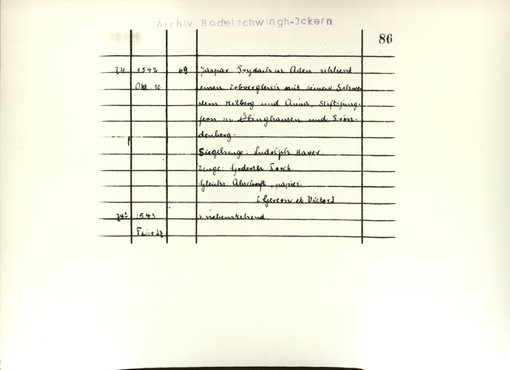 Archiv Bodelschwingh-Ickern
86
1542 69 Jaspar Frydach zu Aden schliesst
Okt 10 einen Erbvergleich mit seinen Schwe-
stern Helberg und Anna, Stiftsjung-
fern zu Elinghausen und Frön-
denberg.
Siegelzeuge: Ludolph Haver
Zeuge: Godert Torck
Gleichz. Abschrift, papier.
[Gereon et Victor]
242 1543 : nebenstehend.